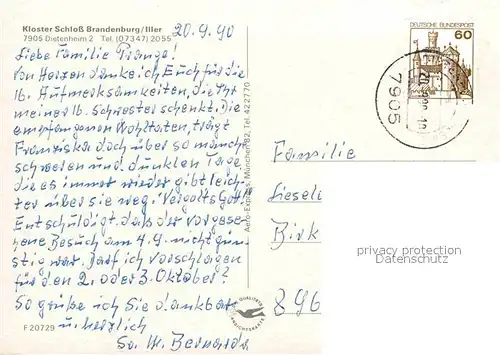 Kloster Schloß Brandenburg/Iller
7905 Dietenheim 2 Tel. (07347) 2055
20.9.90
Liebe Familie Prange!
Von Herzen danke ich Euch für die
lb. Aufmerksamkeiten, die Ihr
meiner lb. Schwester schenkt. Die
empfangenen Wohltaten, trägt
Franziska doch über so manche
schweren und dunklen Tage
die es immer wieder gibt leich-
ter über sie weg. Vergelts Gott!
Entschuldigt daß der vorgese-
hene Besuch am 4.9. nicht gün-
stig war. Darf ich vorschlagen
für den 2. oder 3. Oktober?
So grüße ich Sie dankbar
u. herzlich
Sr. M. Bernarda
F 20729
Aero-Express, München 82, Tel. 422770
QUALITÄTS
ANSICHTSKARTE
DEUTSCHE BUNDESPOST
60
7905
Familie
Lieseli
Birk
896
privacy protection
Datenschutz